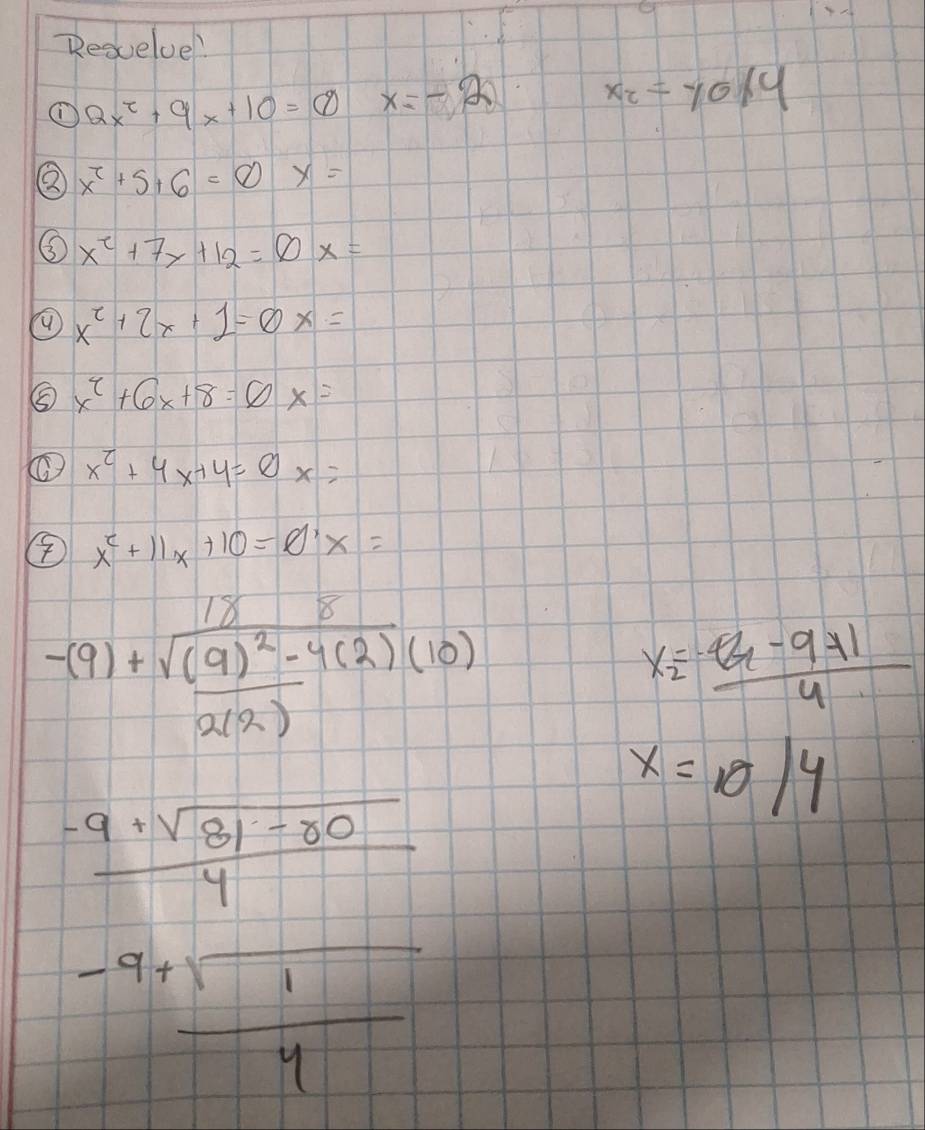 Resuelve:
① 2x² + 9x + 10 = 0 x = - 2 x₂ = -10/4
② x² + 5 + 6 = 0 x =
③ x² + 7x + 12 = 0 x =
④ x² + 2x + 1 = 0 x =
⑤ x² + 6x + 8 = 0 x =
⑥ x² + 4x + 4 = 0 x =
⑦ x² + 11x + 10 = 0 x =
18 8
-(9) + √(9)² - 4(2)(10)
2(2)
-9 + √81 - 80
4
-9 + √1
4
x₂ = -9 + 1
4
x = 10/4